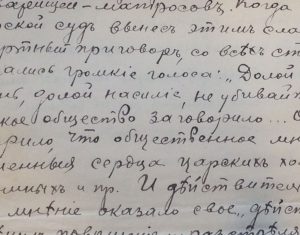 варищей-матросовъ. Когда
рской судъ вынесъ этимъ сла
рутный приговоръ, со всѣхъ ст
ались громкіе голоса: „Долой
нь, долой насиліе, не убивай
ское общество заговорило...
рило, что общественное мн
менныя сердца царскихъ хо
мныхъ и пр. И дѣйствител
мнѣніе оказало свое „дѣйст